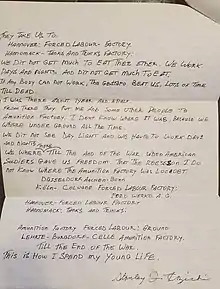 They Take Us To
Hannover: Forced Labour Factory.
Hannomack - Tanks and Trucks Factory.
We dit not get Much to Eat Ther Ether. We work
Days and Nights, and dit not get Much to Eat.
If any Body can Not work, the Gestapo Beat us, Lots of time
Till Dead.
I was there about years and
From there they put me and some other People to
Amunition Factory. I dont know where it was Because we
where under ground all the time.
We dit not see Day Light and we have to work days
and nights
We where Till the end of the war when American
Soldiers gave us freedom that the reeson I do
Not know where the Amunition Factory was
Düsseldorf Aachen: Bonn
Köln - Cologne Forced Labour Factory:
Ford Werke A.G.
Hannover - Forced Labour Factory
Hannomack Tanks and
Amunition Factory Forced Labour: Ground
Lehrte - Burgdorf - Celle Amunition Factory.
Till the End of the War.
This is how I spend my Young Life.
Stanley J.